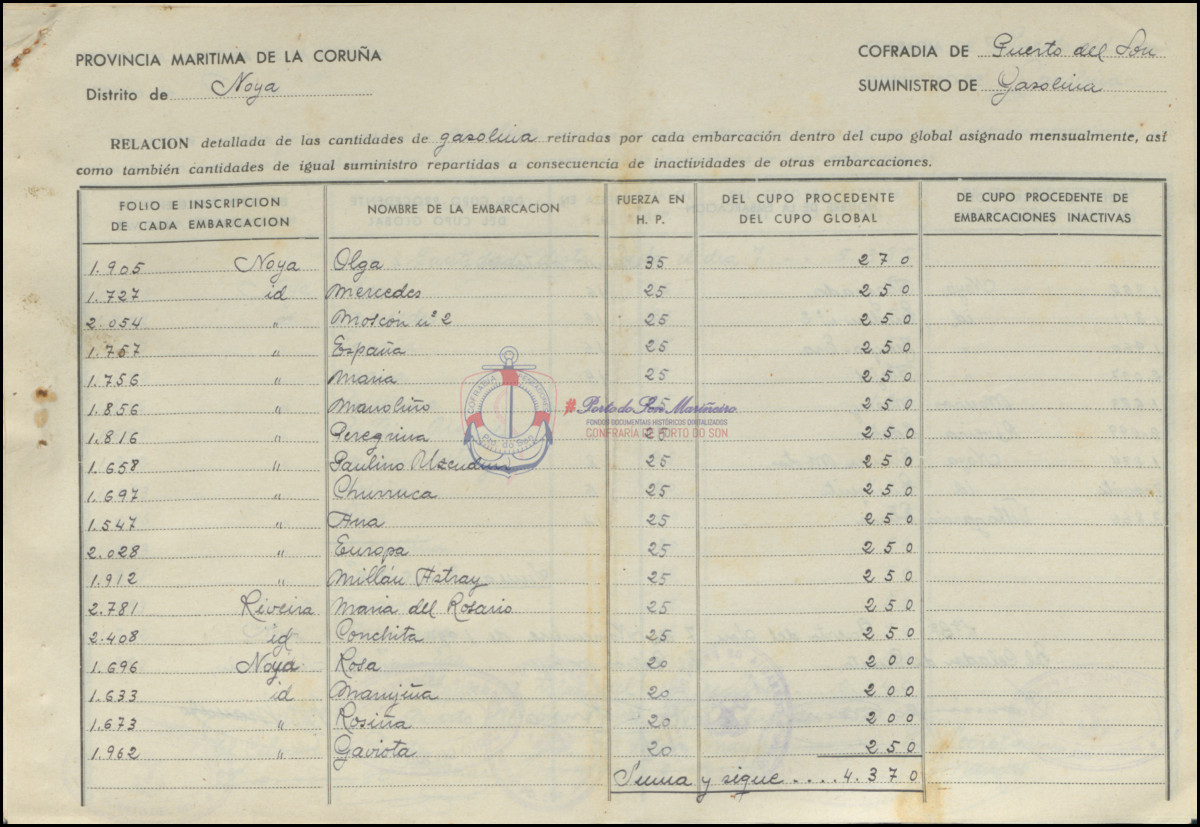 PROVINCIA MARITIMA DE LA CORUÑA
Distrito de Noya
COFRADIA DE Puerto del Son
SUMINISTRO DE Gasolina
RELACION detallada de las cantidades de gasolina retiradas por cada embarcación dentro del cupo global asignado mensualmente, así
como también cantidades de igual suministro repartidas a consecuencia de inactividades de otras embarcaciones.
FOLIO E INSCRIPCION DE CADA EMBARCACION NOMBRE DE LA EMBARCACION FUERZA EN H. P. DEL CUPO PROCEDENTE DEL CUPO GLOBAL DE CUPO PROCEDENTE DE EMBARCACIONES INACTIVAS
1.905 Noya Olga 35 270
1.727 id Mercedes 25 250
2.054 " Moscón nº 2 25 250
1.757 " España 25 250
1.756 " Maria 25 250
1.856 " Manoliño 25 250
1.816 " Peregrina 25 250
1.658 " Paulino Uzcudun 25 250
1.697 " Churruca 25 250
1.547 " Ana 25 250
2.028 " Europa 25 250
1.912 " Millán Astray 25 250
2.781 Riveira Maria del Rosario 25 250
2.408 id Conchita 25 250
1.696 Noya Rosa 20 200
1.633 id Marujiña 20 200
1.673 " Rosiña 20 200
1.962 " Gaviota 20 250
Suma y sigue .... 4.370
COFRADIA PESCADORES
Pto. do Son
# Porto do Son Mariñeiro
FONDOS DOCUMENTAIS HISTÓRICOS DIXITALIZADOS
CONFRARÍA DE PORTO DO SON